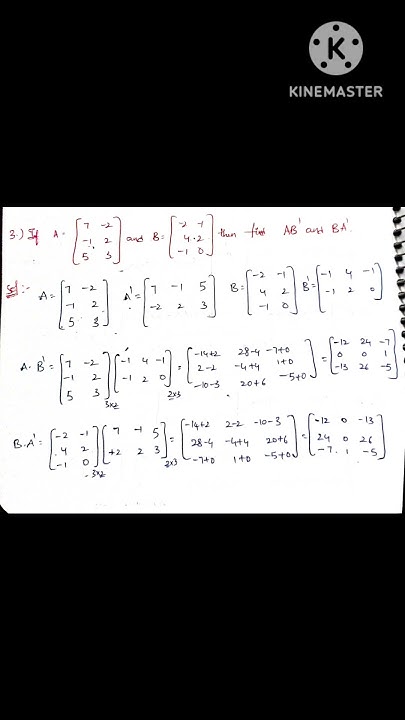 K
KINEMASTER
3.) If A = [7 -2 -1 2 5 3] and B = [-2 -1 4 2 -1 0] then find AB' and BA'.
Sol:- A = [7 -2 -1 2 5 3] A' = [7 -1 5 -2 2 3] B = [-2 -1 4 2 -1 0] B' = [-1 4 -1 -1 2 0]
A. B' = [7 -2 -1 2 5 3] 3x2 [-1 4 -1 -1 2 0] 2x3 = [-14+2 28-4 -7+0 2-2 -4+4 1+0 -10-3 20+6 -5+0] = [-12 24 -7 0 0 1 -13 26 -5]
B.A' = [-2 -1 4 2 -1 0] 3x2 [7 -1 5 +2 2 3] 2x3 = [-14+2 2-2 -10-3 28-4 -4+4 20+6 -7+0 1+0 -5+0] = [-12 0 -13 24 0 26 -7 1 -5]